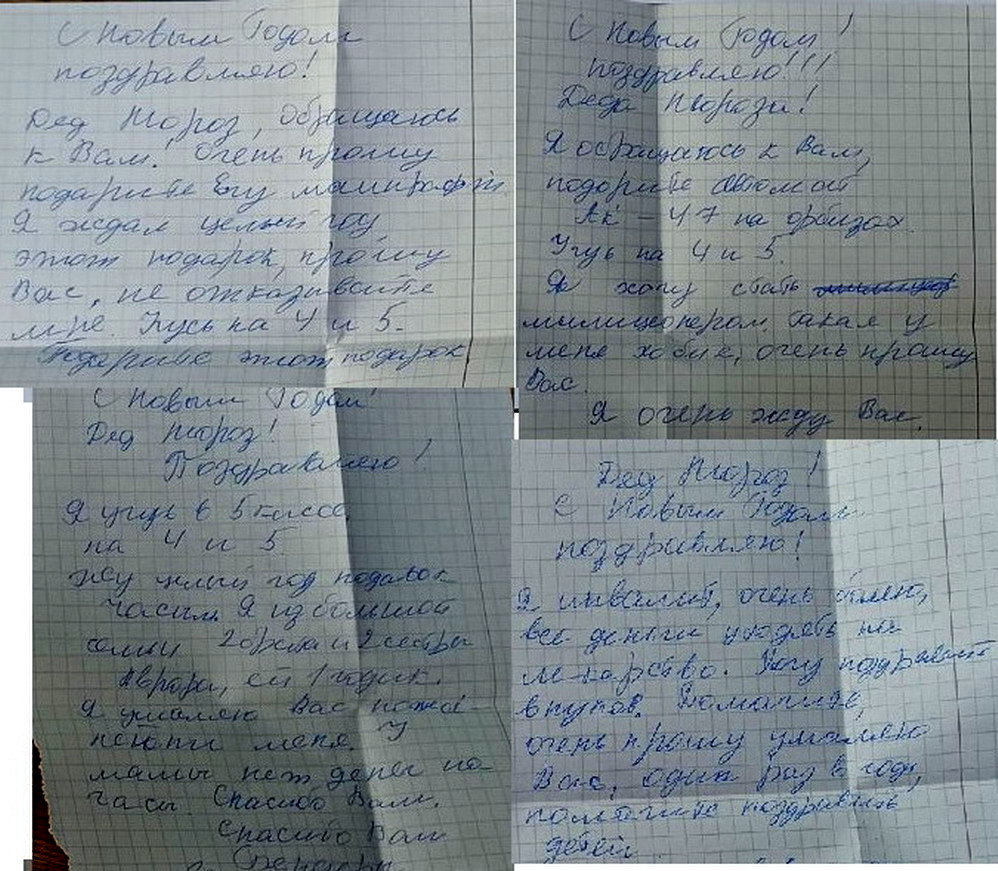 С Новым Годом
поздравляю!
Дед Мороз, обращаюсь
к Вам! Очень прошу
подарите Егу маинкрафт
Я ждал целый год
этот подарок, прошу
Вас, не отказывайте
мне. Учусь на 4 и 5.
Подарите этот подарок
С Новым Годом!
поздравляю!!!
Деда Мороза!
Я обращаюсь к Вам,
подорите автомат
Ак - 47 на орбизах.
Учусь на 4 и 5.
Я хочу стать
милиционером. Такая у
меня хобие, очень прошу
Вас.
Я очень жду Вас.
С Новым Годом!
Дед Мороз!
Поздравляю!
Я учусь в 5 классе
на 4 и 5
жду целый год подарок
часы. Я из большой
семьи 2 брата и 2 сестры
Аврора, ей 1 годик.
Я умоляю Вас
меня. У
мамы нет денег на
часы. Спасибо Вам.
Спасибо Вам
Дед Мороз!
С Новым Годом
поздравляю!
Я инвалит, очень болею,
все деньги уходять на
лекарство. Хочу поздравит
внуков.
очень прошу умаляю
Вас, один раз в году,
помогите поздравить
детей